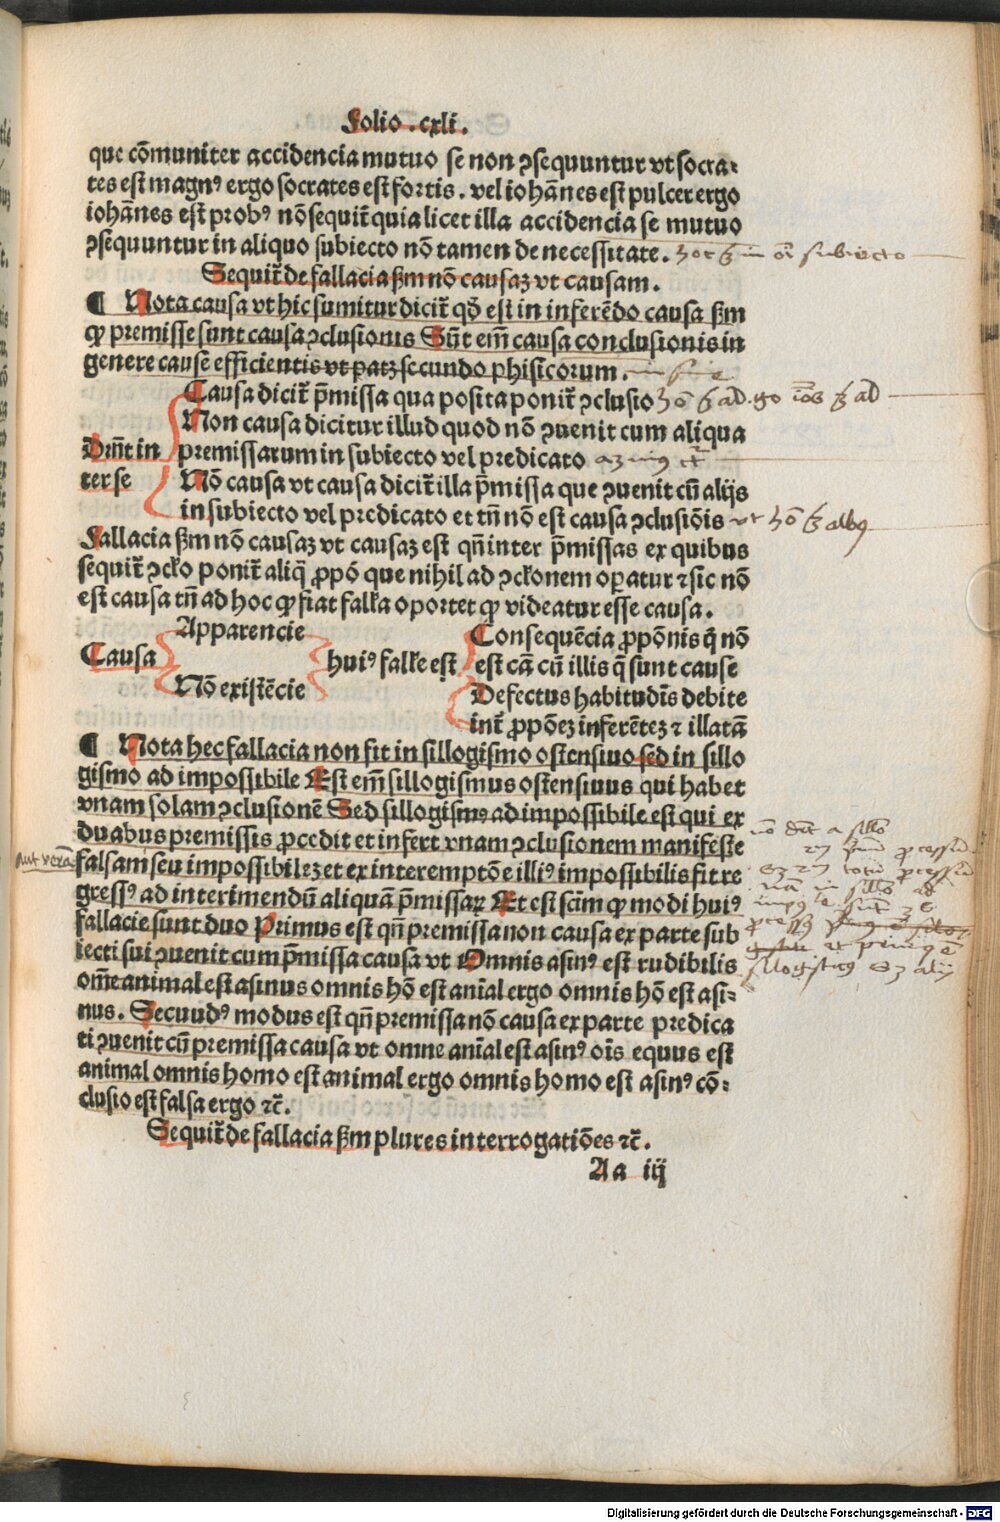 Folio .cxli.
que cōmuniter accidencia mutuo se non ↄsequuntur vt socra⸗
tes est magnꝰ ergo socrates est fortis. vel iohānes est pulcer ergo
iohānes est probꝰ nō sequit̃ quia licet illa accidencia se mutuo
ↄsequuntur in aliquo subiecto nō tamen de necessitate. subiecto
Sequit̃ de fallacia ẜm nō causaꝫ vt causam.
¶ Nota causa vt hic sumitur dicit̃ qd̕ est in inferēdo causa ẜm
ꝙ premisse sunt causa ↄclusionis Sūt em̄ causa conclusionis in
genere cause efficientis vt patꝫ secundo phisicorum.
Causa dicit̃ p̄missa qua posita ponit̃ ↄclusio
Non causa dicitur illud quod nō ↄuenit cum aliqua
Dr̄nt in premissarum in subiecto vel predicato
ter se Nō causa vt causa dicit̃ illa p̄missa que ↄuenit cū alijs
in subiecto vel predicato et tn̄ nō est causa ↄclusiōis
Fallacia ẜm nō causaꝫ vt causaꝫ est qn̄ inter p̄missas ex quibus
sequit̃ ↄcło ponit̃ aliq̄ ꝓpō que nihil ad ↄcłonem operatur ⁊ sic nō
est causa tn̄ ad hoc ꝙ fiat falła oportet ꝙ videatur esse causa.
Apparencie Consequēcia ꝓpōnis q̄ nō
Causa huiꝰ falłe est est cā cū illis q̄ sunt cause
Nō existēcie Defectus habitudīs debite
int̃ ꝓpōeꝫ inferēteꝫ ⁊ illatā
¶ Nota hec fallacia non fit in sillogismo ostensiuo sed in sillo
gismo ad impossibile Est em̄ sillogismus ostensiuus qui habet
vnam solam ↄclusionē Sed sillogismꝰ ad impossibile est qui ex
duabus premissis ꝓcedit et infert vnam ↄclusionem manifeste
falsam seu impossibileꝫ et ex interemptōe illiꝰ impossibilis fit re
gressꝰ ad interimendū aliquā p̄missaꝝ Et est scīm ꝙ modi huiꝰ
fallacie sunt duo Primus est qn̄ premissa non causa ex parte sub
iecti sui ↄuenit cum p̄missa causa vt Omnis asinꝰ est rudibilis
om̄e animal est asinus omnis hō est aīal ergo omnis hō est asi⸗
nus. Secuudꝰ modus est qn̄ premissa nō causa ex parte predica
ti ↄuenit cū premissa causa vt omne aīal est asinꝰ oīs equus est
animal omnis homo est animal ergo omnis homo est asinꝰ cō⸗
clusio est falsa ergo ⁊c̄.
Sequit̃ de fallacia ẜm plures interrogatiōes ⁊c̄.
Aa iij
Digitalisierung gefördert durch die Deutsche Forschungsgemeinschaft - DFG